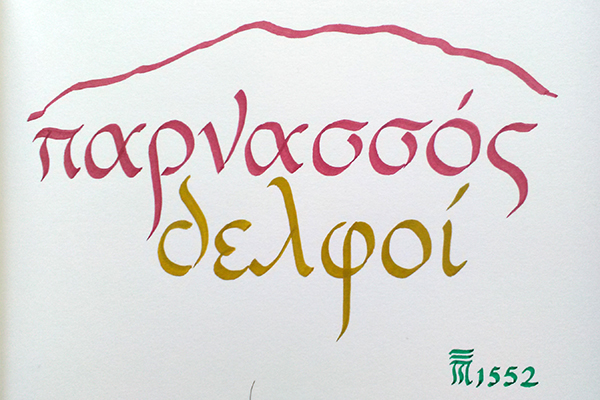 παρνασσός
δελφοί
1552